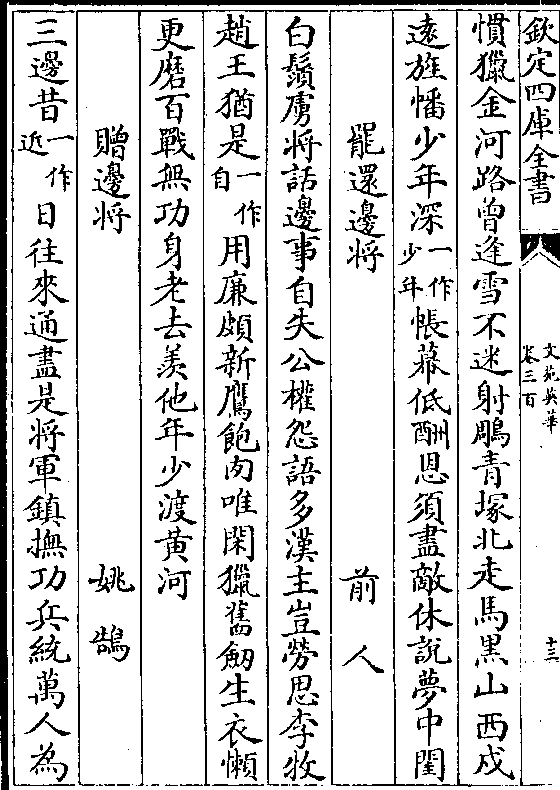 欽定四庫全書
文苑英華
卷三百
十三
慣獵金河路曾逢雪不迷射鵰青塚北走馬黒山西戍
逺旌幡少年深一作少年帳幕低酬恩須盡敵休説夢中閨
罷還邊将
前人
白鬚虜将話邊事自失公權怨語多漢主豈勞思李牧
趙王猶是一作自用廉頗新鷹飽肉唯閑獵舊劒生衣懶
更磨百戰無功身老去羨他年少渡黄河
贈邊将
姚鵠
三邊昔一作近日往來通盡是将軍鎮撫功兵統萬人為